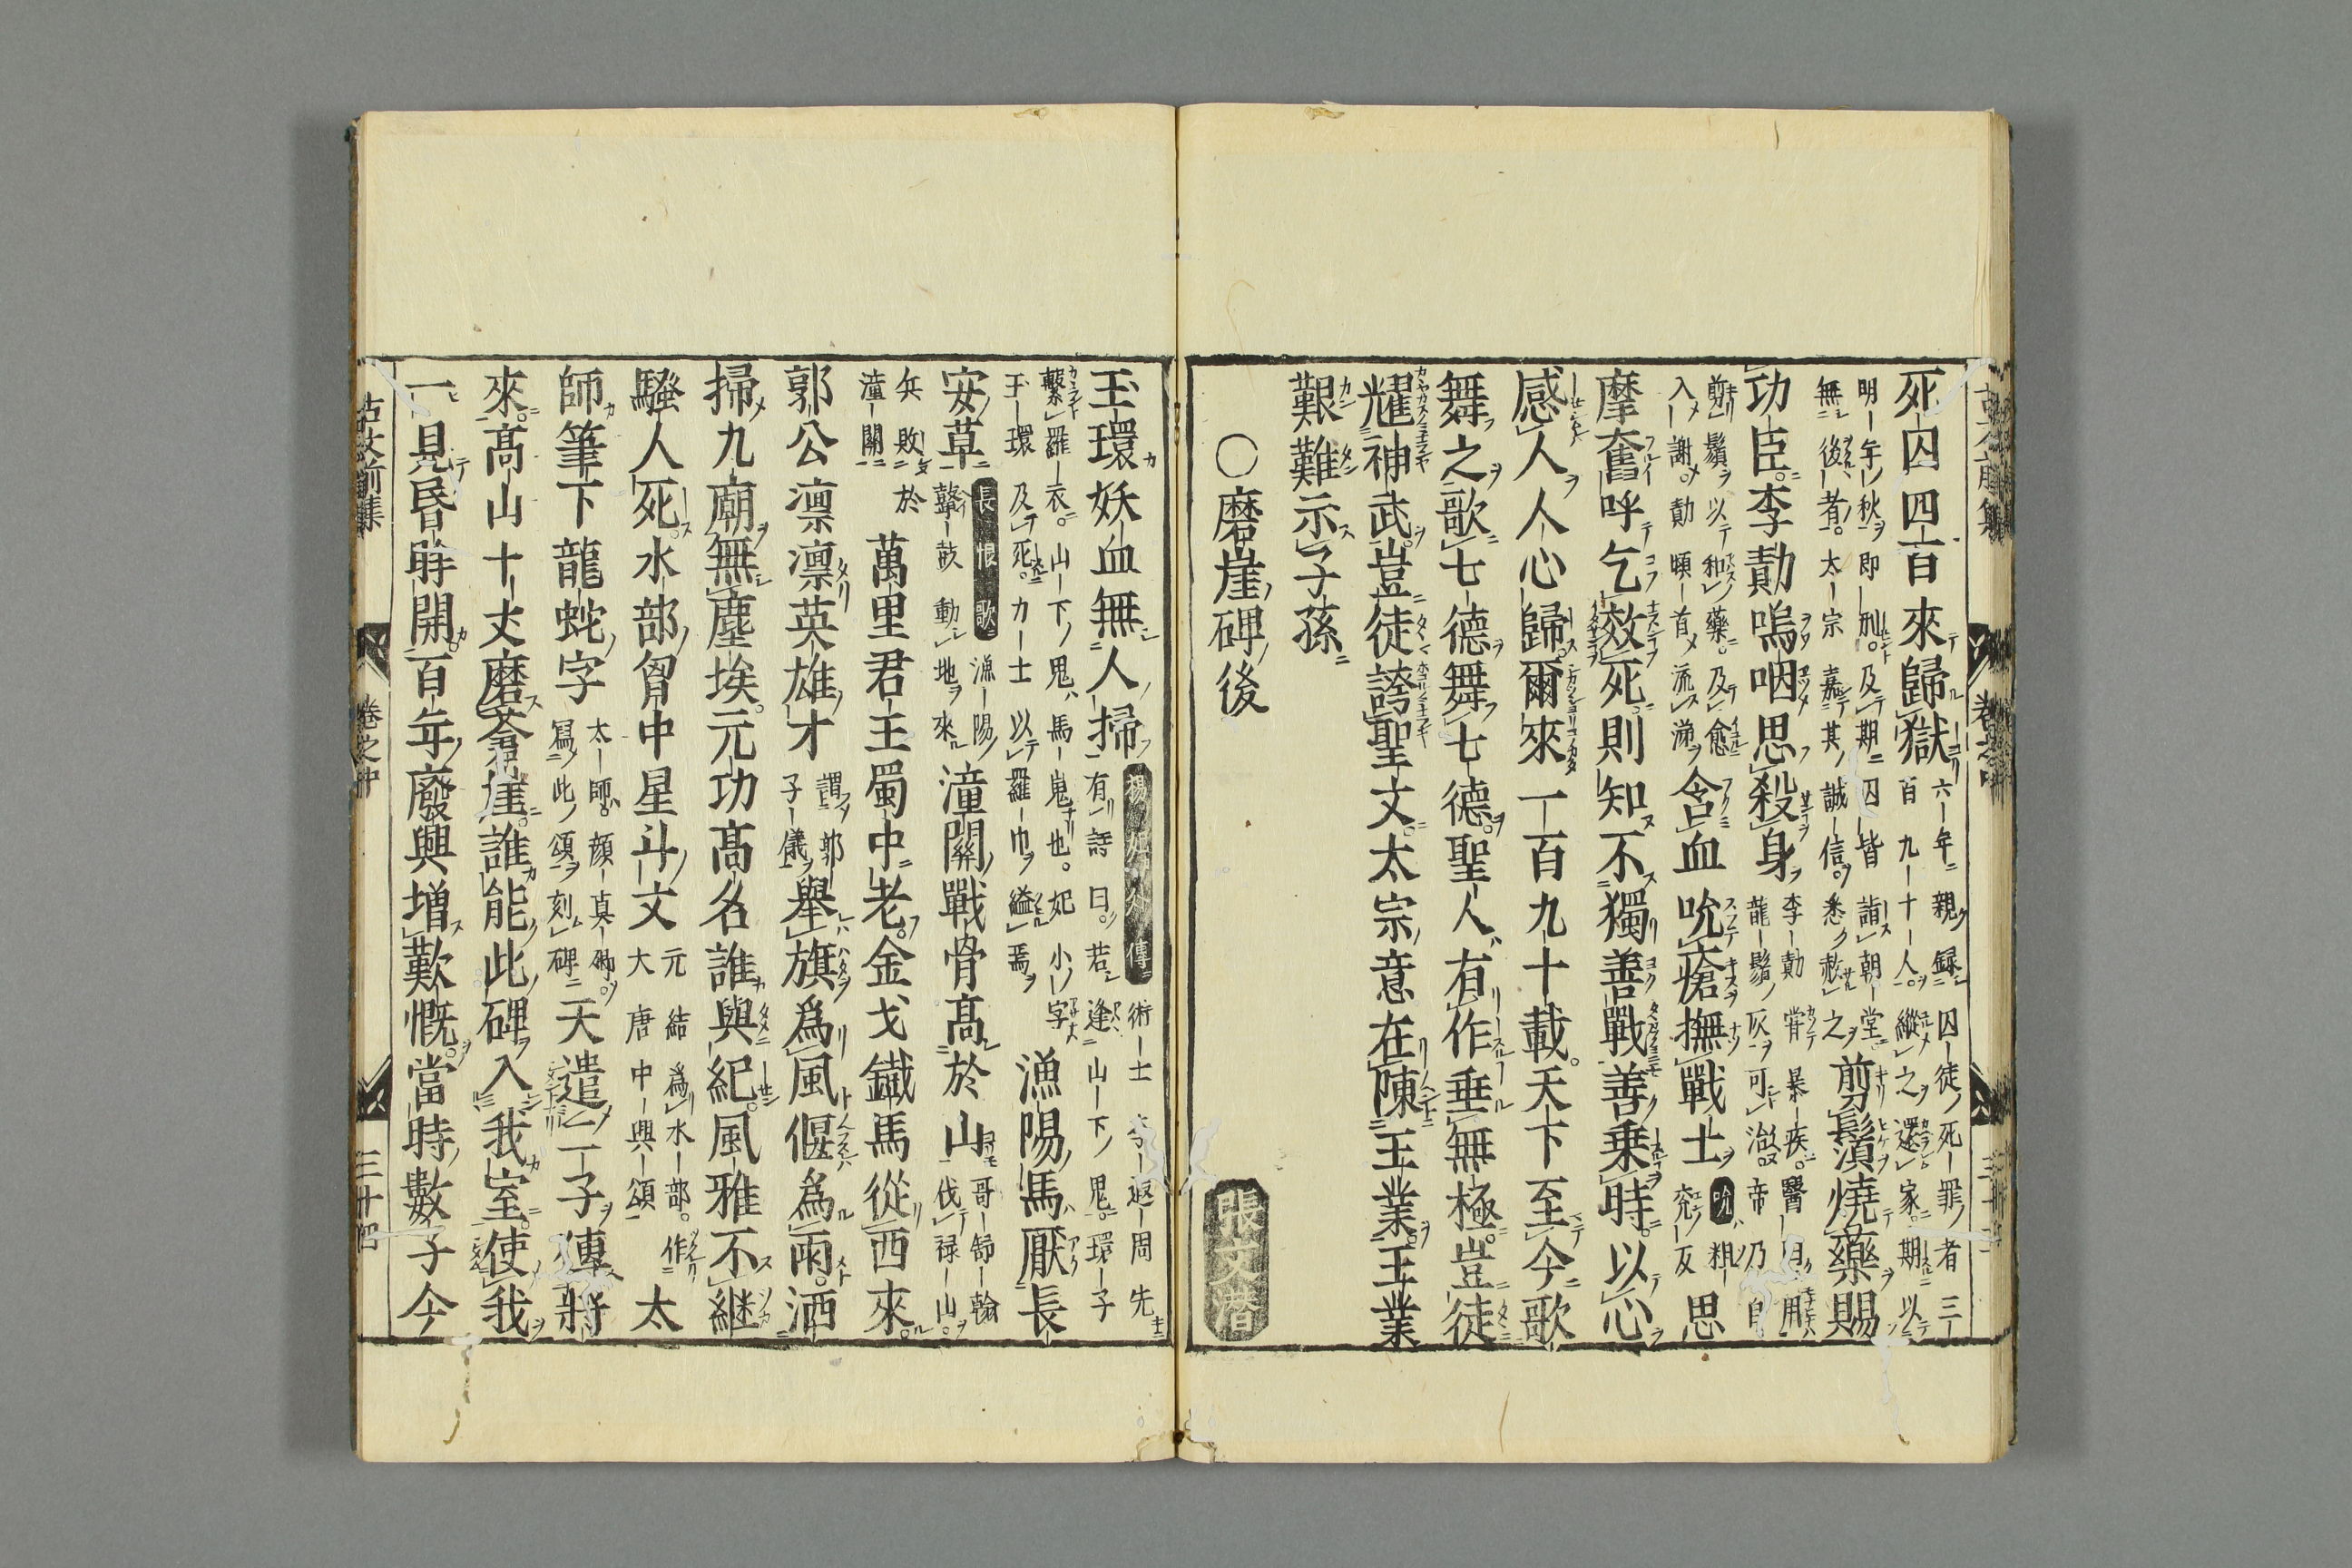 死囚四百來歸獄六年親録囚徒死罪者三
百九十人縱之還家期以
明年秋即刑及期囚皆詣朝堂
無後者太宗嘉其誠信悉赦之剪鬚燒藥賜
功臣李勣嗚咽思殺身李勣嘗暴疾醫曰用
龍鬚灰可治帝乃自
剪鬚以和藥及愈
入謝勣頓首流涕含血吮瘡撫戰士吮粗
兗反思
摩奮呼乞效死則知不獨善戰善乗時以心
感人人心歸爾來一百九十載天下至今歌
舞之歌七德舞七德聖人有作垂無極豈徒
耀神武豈徒誇聖文太宗意在陳王業王業
艱難示子孫
○磨崖碑後
張文潛
玉環妖血無人掃楊妃外傳術士李遐周先
有詩曰若逢山下鬼環子
繫羅衣山下鬼馬嵬也妃小字
玉環及死力士以羅巾縊焉漁陽馬厭長
安草長恨歌漁陽
鼙鼓動地來潼關戰骨高於山哥舒翰
伐禄山
兵敗於
潼關萬里君王蜀中老金戈鐵馬從西來
郭公凛凛英雄才謂郭
子儀舉旗爲風偃爲雨洒
掃九廟無塵埃元功髙名誰與紀風雅不継
騷人死水部胷中星斗文元結爲水部作
大唐中興頌太
師筆下龍蛇字太師顔真卿
寫此頌刻碑天遣二子傳將
來髙山十丈磨蒼崖誰能此碑入我室使我
一見昏眸開百年廢興増歎慨當時數子今
古文前集 卷之中 三十四